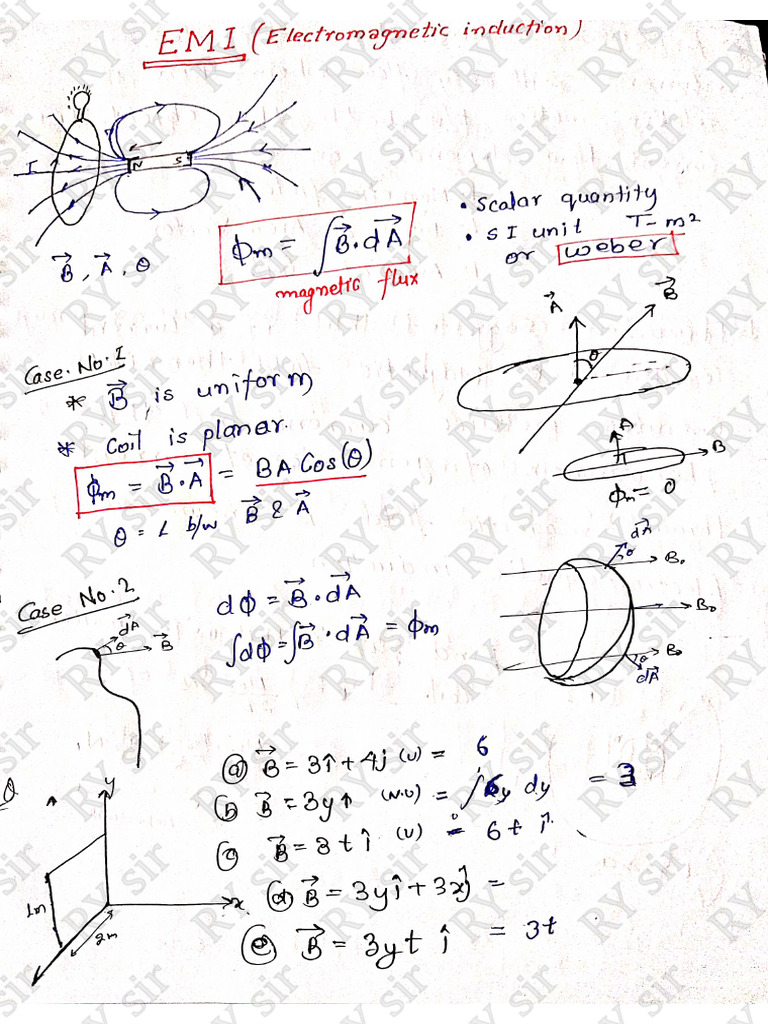 EMI (Electromagnetic induction)
I
N S
B⃗, A⃗, θ
ϕm = ∫B⃗·dA⃗
magnetic flux
• Scalar quantity
• SI unit T-m²
or weber
A⃗ B⃗
θ
Case. No. I
* B⃗ is uniform
* Coil is planer.
ϕm = B⃗·A⃗ = BA Cos(θ)
θ = ∠ b/w B⃗ & A⃗
A B
ϕm = 0
Case No. 2
dϕ = B⃗·dA⃗
∫dϕ = ∫B⃗·dA⃗ = ϕm
dA⃗
θ B⃗
dA⃗
θ B₀
B₀
θ B₀
dA⃗
Q
y
x
1m
2m
(a) B⃗ = 3î + 4ĵ (U) = 6
(b) B⃗ = 3yî (N.U) = ∫6y dy = 3
(c) B⃗ = 3t î (U) = 6t î
(d) B⃗ = 3yî + 3xĵ =
(e) B⃗ = 3yt î = 3t
RY sir